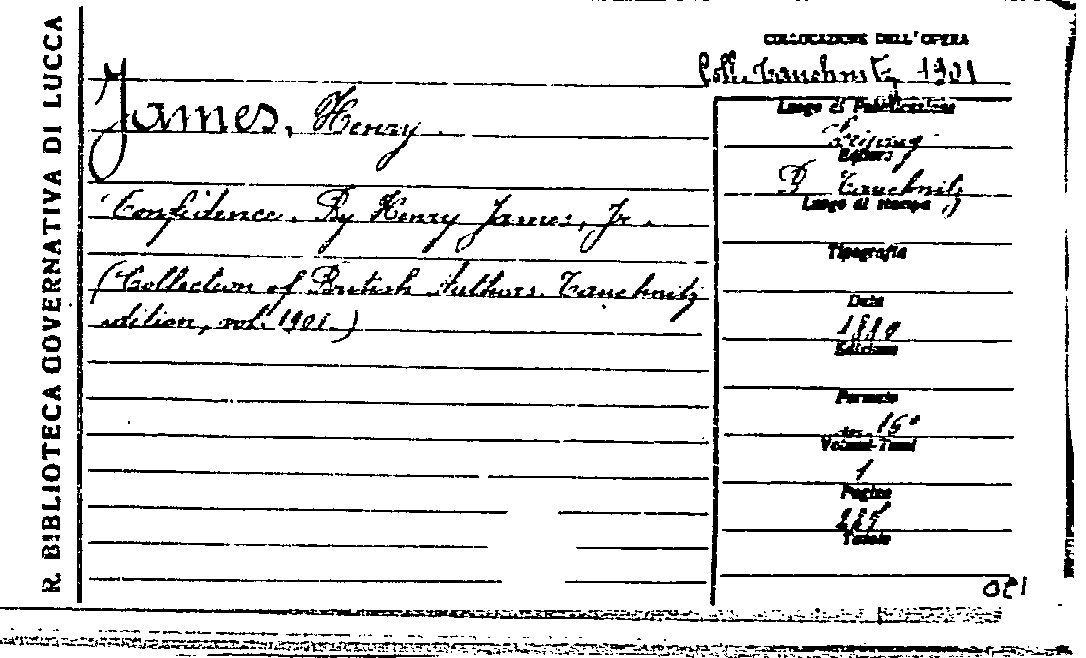 R. BIBLIOTECA GOVERNATIVA DI LUCCA
COLLOCAZIONE DELL'OPERA
Coll. Tauchnitz 1901
James, Henry.
Confidence. By Henry James, Jr.
(Collection of British Authors. Tauchnitz
edition, vol. 1901.)
Luogo di Pubblicazione
Leipzig
Editore
B Tauchnitz
Luogo di stampa
Tipografia
Data
1880
Edizione
Formato
16°
Volumi-Tomi
1
Pagine
Tavole